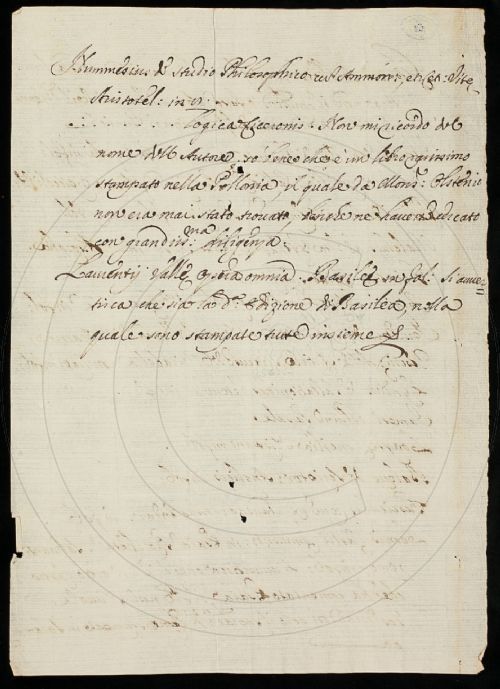 Nummesius de studio Philosophico cu Ammonij, et et: Vite
Aristotel: in 8:
Logica Ciceronis. Non mi ricordo del
nome dell Autore, so bene che è un libro
stampato nella Pollonia, il quale da Mons: Olstenio
non era mai stato trovato, havendo
con grandiss:ma diligenza
Laurentij Vallę Opera omnia. Basileę in fol: Si auuer=
tisca che sia la d:a edizione di Basilea, nella
quale sono stampate tutte insieme